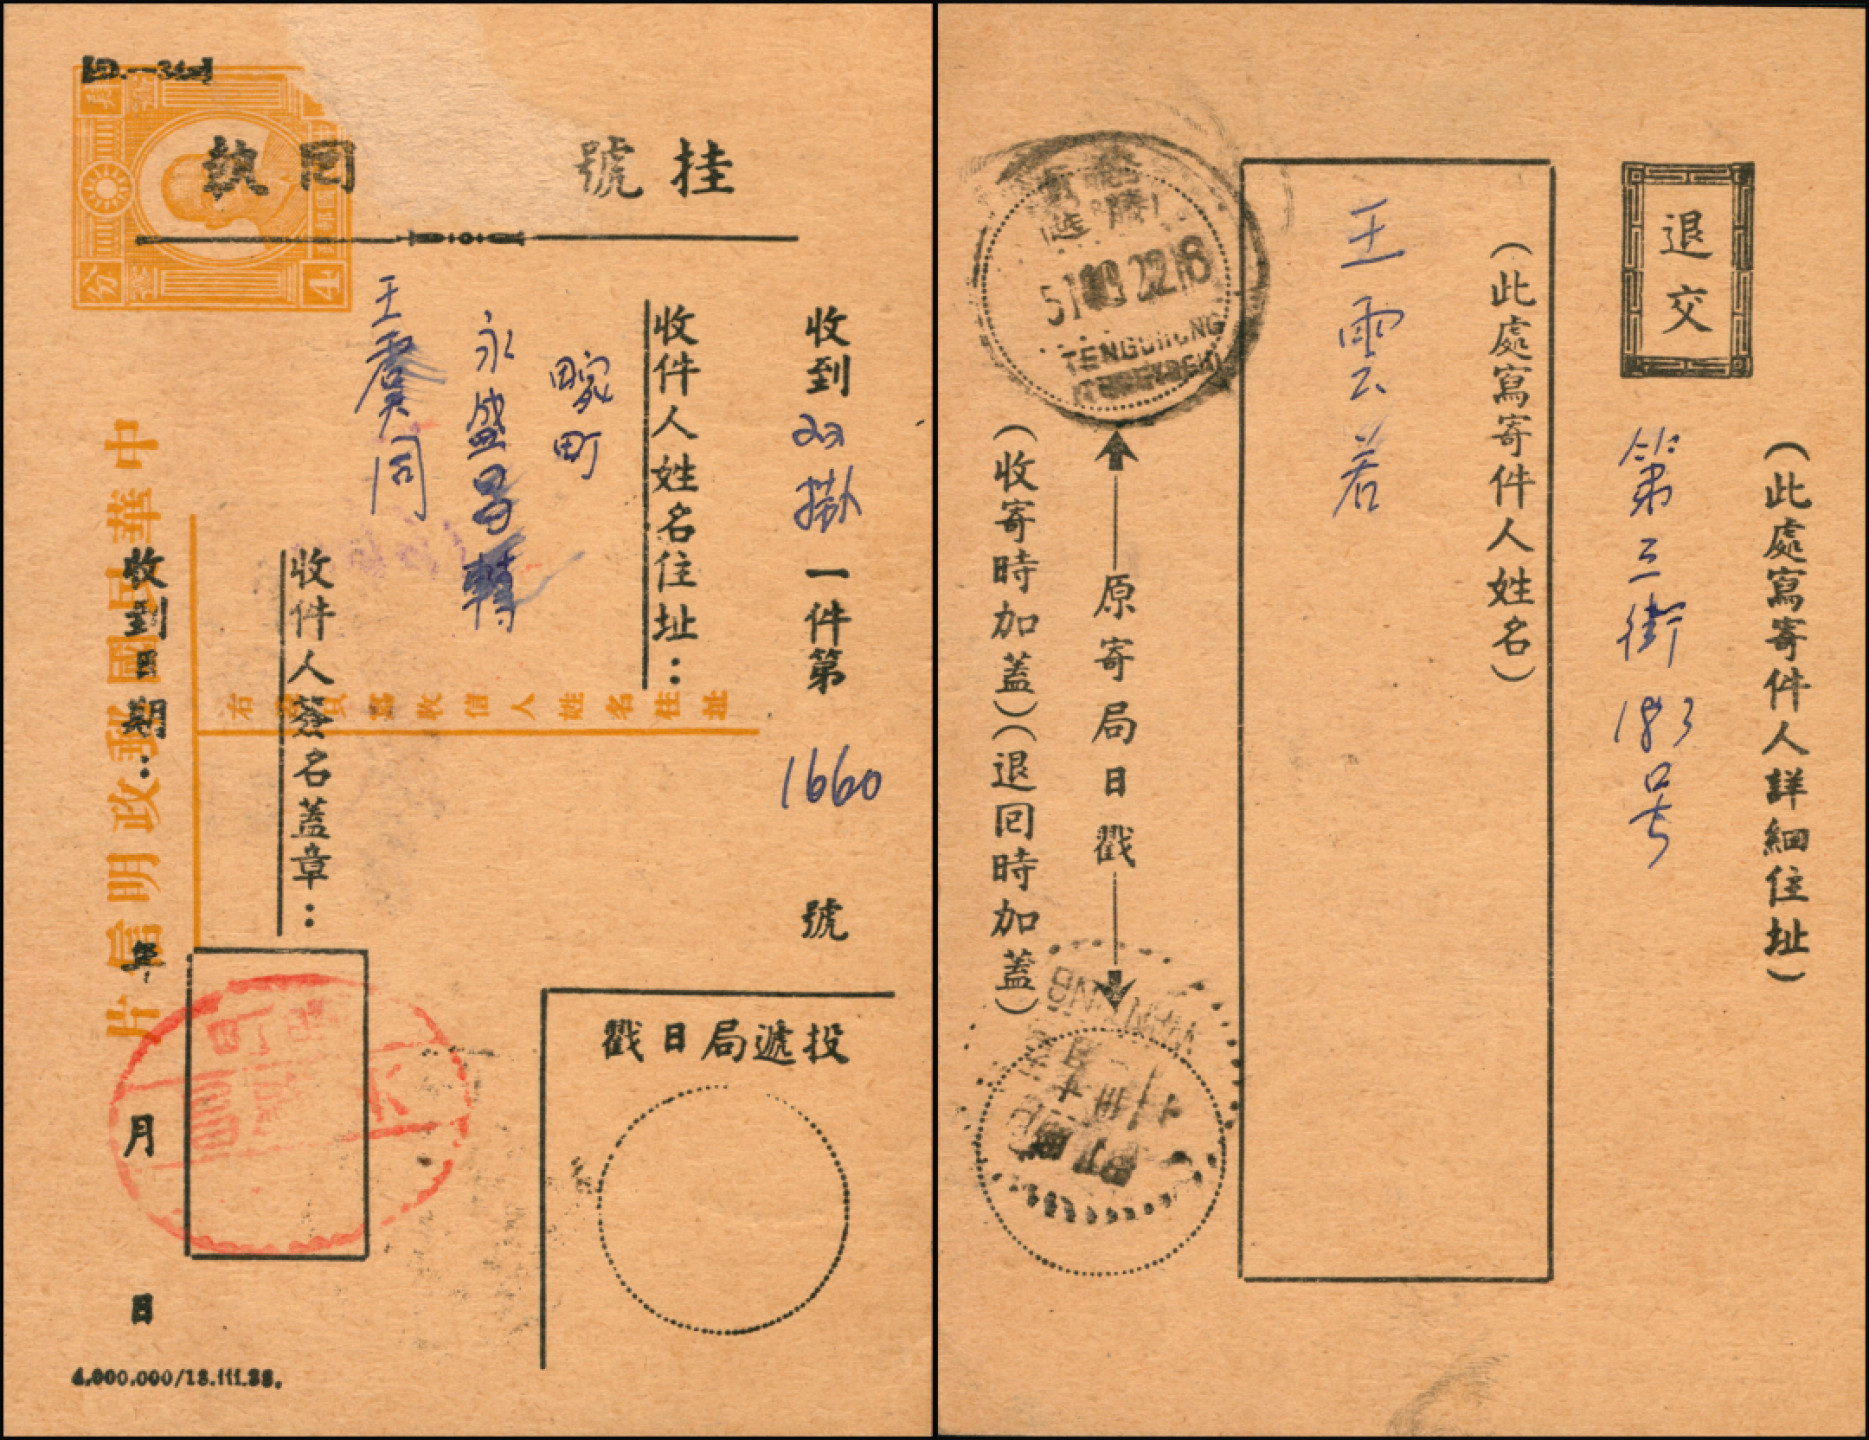 挂號 回執
收到双掛一件第 1660 號
收件人姓名住址：
畹町
永盛昌轉
王 同
收件人簽名蓋章：
收到日期： 年 月 日
投遞局日戳
中華民國郵政明信片
右 收信人姓名住址
分
4
4,000,000/18.iii.38.
退交
（此處寫寄件人詳細住址）
第三街193号
（此處寫寄件人姓名）
王雲若
原寄局日戳
（收寄時加蓋）（退回時加蓋）
騰
TENGCHUNG
畹町
WANTING